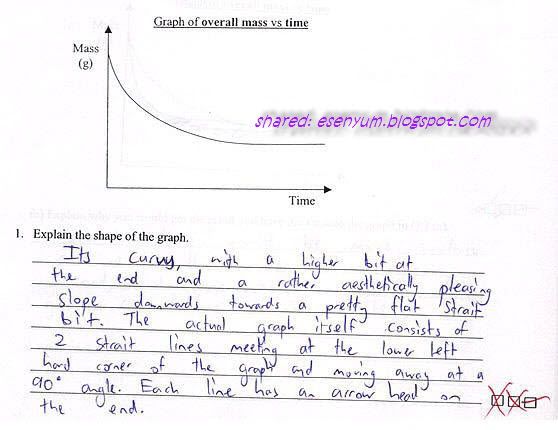 Graph of overall mass vs time
Mass
(g)
shared: esenyum.blogspot.com
Time
1. Explain the shape of the graph.
Its curvy, with a higher bit at
the end and a rather aesthetically pleasing
slope downwards towards a pretty flat strait
bit. The actual graph itself consists of
2 strait lines meeting at the lower left
hand corner of the graph and moving away at a
90° angle. Each line has an arrow head on
the end.